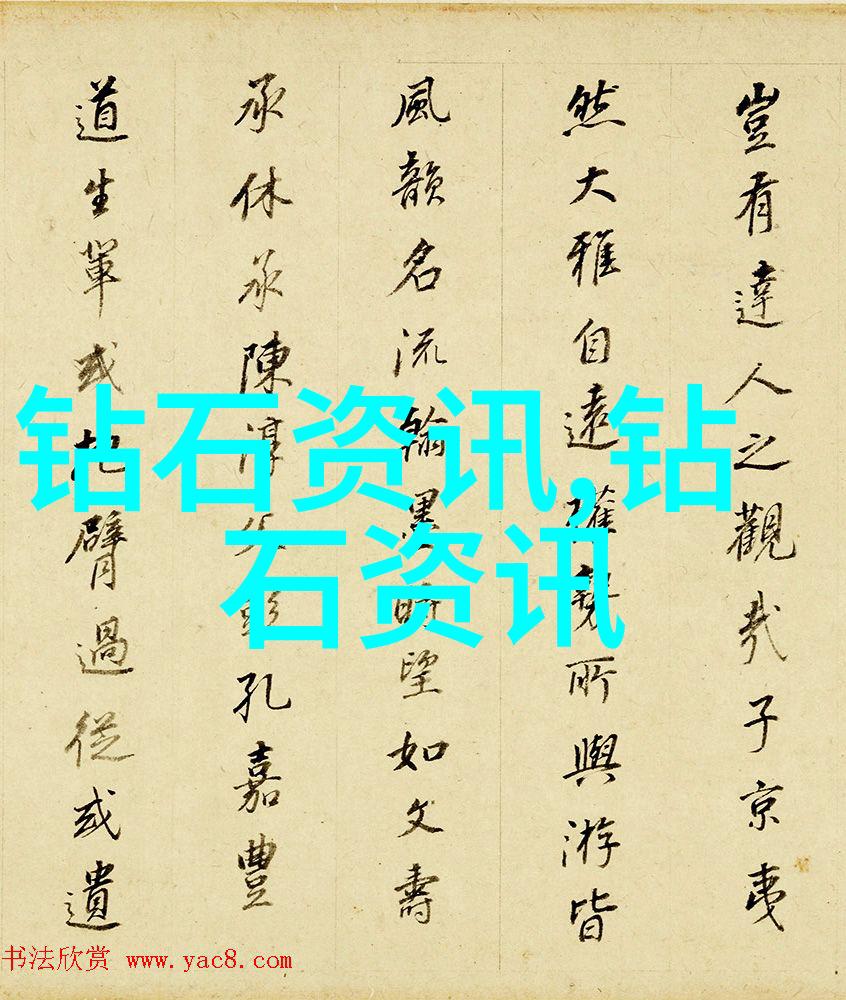 豈有達人之觀哉子京夷
然大雅自遠所與游皆
風韻名流翰墨時望如文壽
承休承陳淳父彭孔嘉豐
道生輩或把臂過從或遺
钻石资讯,钻
石资讯
书法欣赏 www.yac8.com